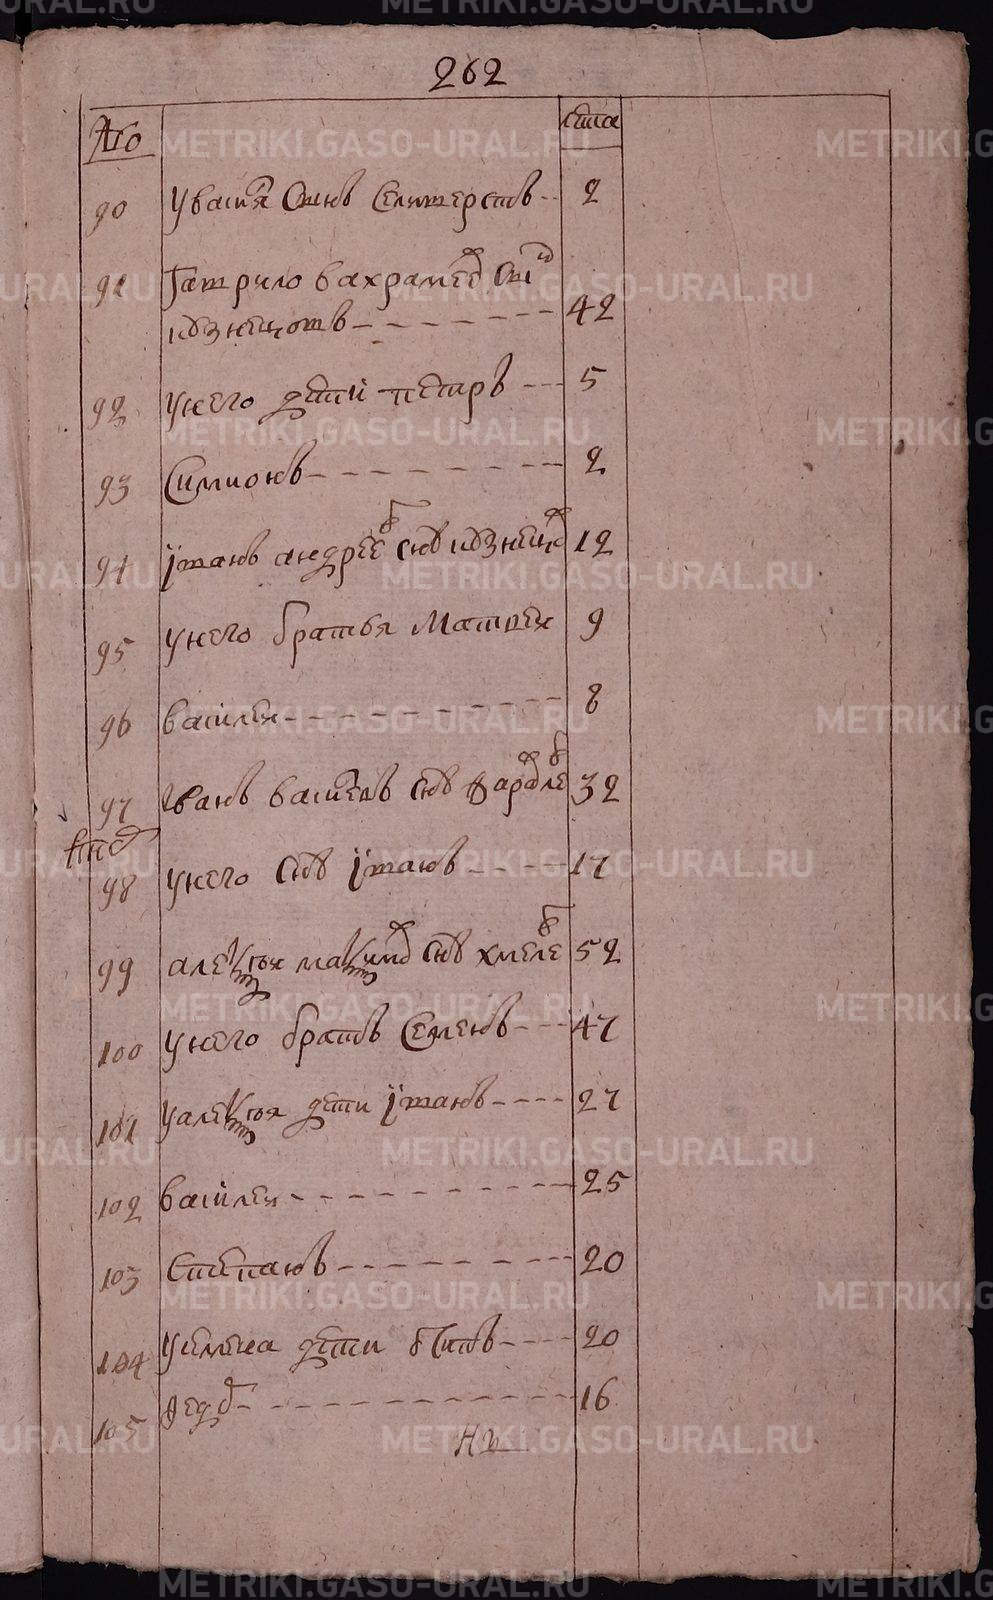 262
№
лѣта
90 У василья сынъ Селиверстъ 2
91 Гаврило Вахрамеевъ сынъ
кузнецовъ 42
92 У него дети петръ 5
93 Симионъ 2
94 Иванъ андреевъ снъ кузнецовъ 12
95 У него братья Матвей 9
96 Василей 8
97 Иванъ василевъ снъ 32
98 У него снъ Иванъ 17
99 Алексей максимовъ снъ хмелевъ 52
100 У него братъ Семенъ 47
101 У алексея дети Иванъ 27
102 Василей 25
103 Степанъ 20
104 У семена дети 20
105 Федоръ 16
METRIKI.GASO-URAL.RU